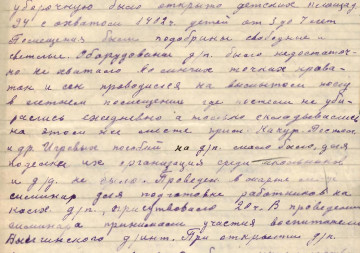 уборочную было открыто детских площад
34 с охватом 1402 детей от 3 до 7 лет
Помещения были подобраны свободные
светлые. Оборудования д/п. было недостаточ-
но не хватало во многих точках крова-
ток и сон проводился на вшитом полу
в летнем помещении где постели не уби-
рались ежедневно а только складывались
на этом же месте прим.
и др. Игровых пособий на д/п. мало было, для
их организация среди школьников
и д/д. не было. Проведен в марте
семинар для подготовки работников на
д/п., присутствовало 20 ч. В проведении
семинара принимали участия воспитатели
д/инт. При открытии д/п.